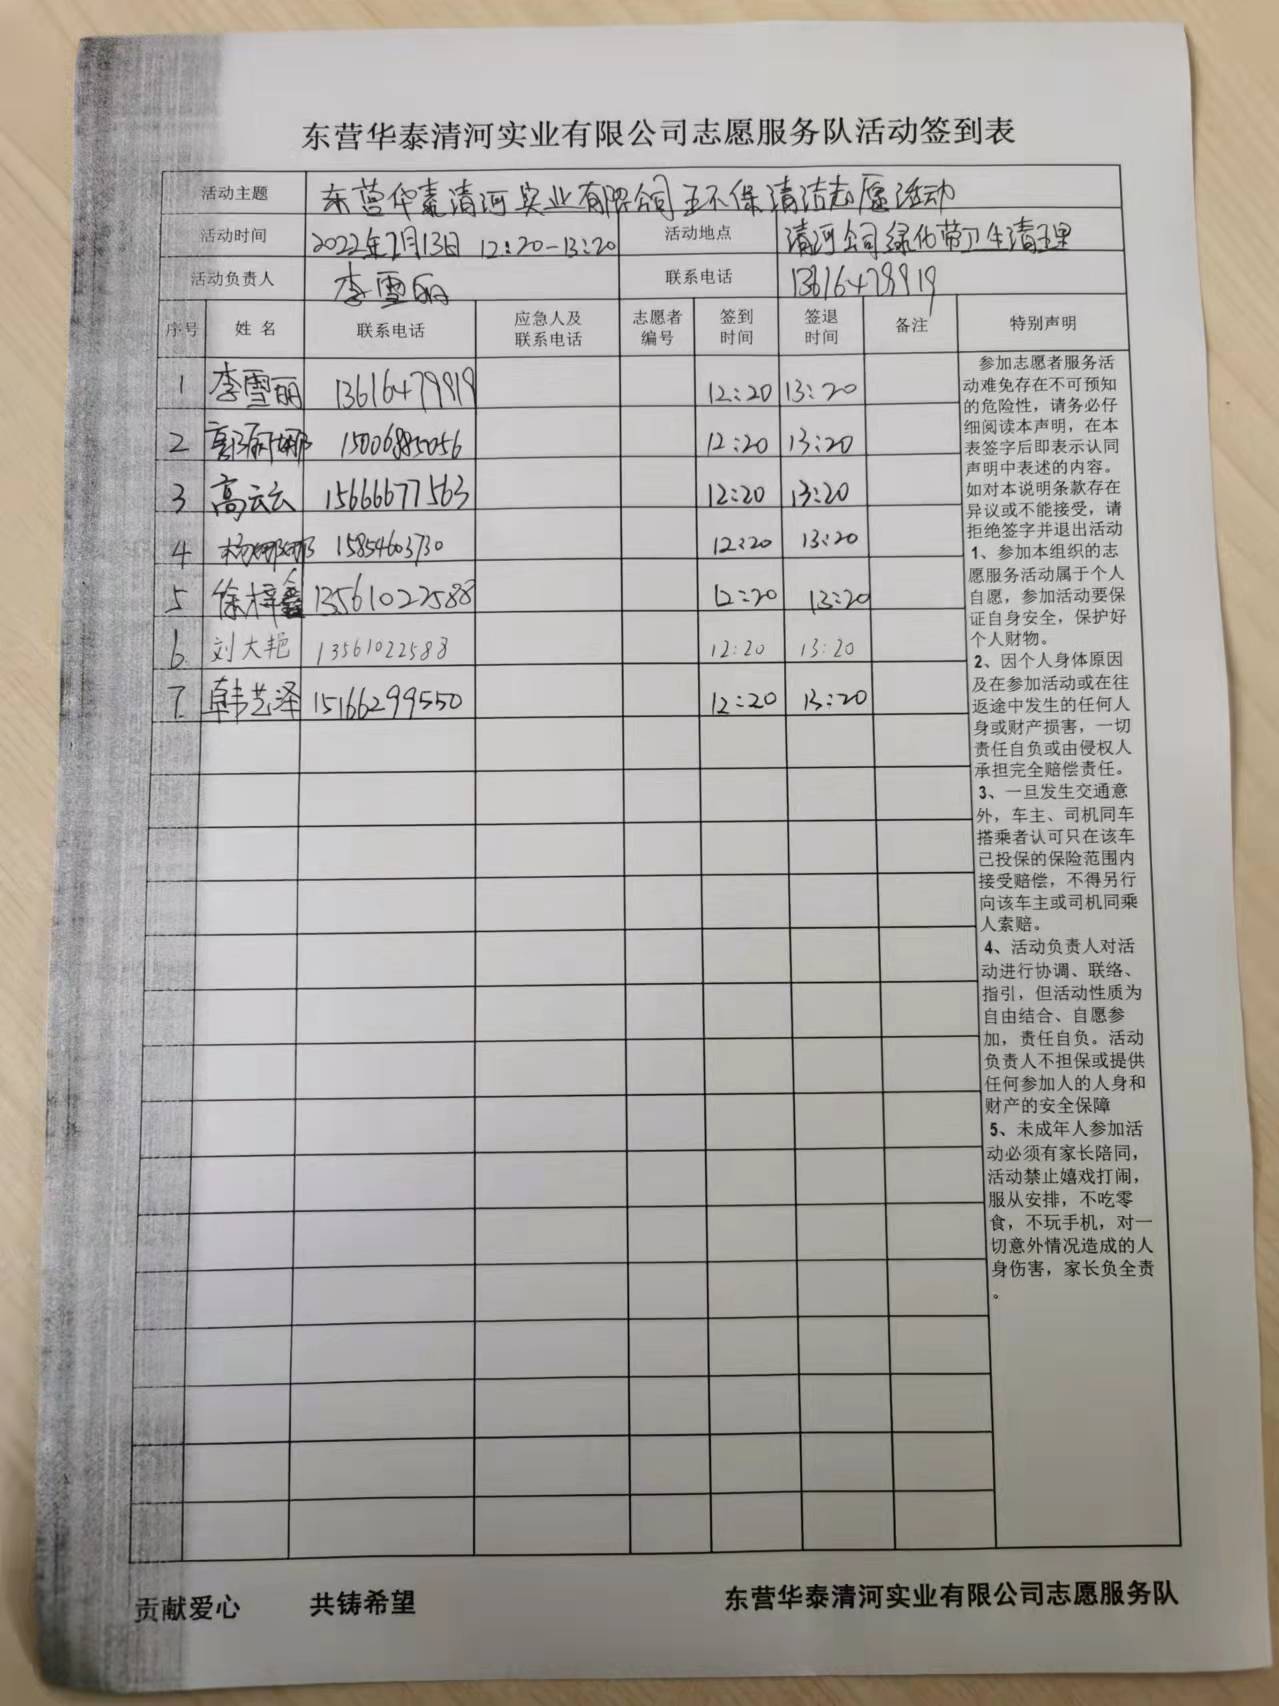 东营华泰清河实业有限公司志愿服务队活动签到表
活动主题 东营华泰清河实业有限公司环保清洁志愿活动
活动时间 2022年7月13日 12:20-13:20 活动地点 清河公司绿化带卫生清理
活动负责人 李雪丽 联系电话 13616479919
序号 姓名 联系电话 应急人及联系电话 志愿者编号 签到时间 签退时间 备注 特别声明
1 李雪丽 13616479919 12:20 13:20
2 15006885056 12:20 13:20
3 高云云 15666677563 12:20 13:20
4 杨娜娜 15854603730 12:20 13:20
5 徐梓鑫 13561022588 12:20 13:20
6 刘大艳 13561022588 12:20 13:20
7 韩艺泽 15166299550 12:20 13:20
参加志愿者服务活
动难免存在不可预知
的危险性，请务必仔
细阅读本声明，在本
表签字后即表示认同
声明中表述的内容。
如对本说明条款存在
异议或不能接受，请
拒绝签字并退出活动
1、参加本组织的志
愿服务活动属于个人
自愿，参加活动要保
证自身安全，保护好
个人财物。
2、因个人身体原因
及在参加活动或在往
返途中发生的任何人
身或财产损害，一切
责任自负或由侵权人
承担完全赔偿责任。
3、一旦发生交通意
外，车主、司机同车
搭乘者认可只在该车
已投保的保险范围内
接受赔偿，不得另行
向该车主或司机同乘
人索赔。
4、活动负责人对活
动进行协调、联络、
指引，但活动性质为
自由结合、自愿参
加，责任自负。活动
负责人不担保或提供
任何参加人的人身和
财产的安全保障
5、未成年人参加活
动必须有家长陪同，
活动禁止嬉戏打闹，
服从安排，不吃零
食，不玩手机，对一
切意外情况造成的人
身伤害，家长负全责
。
贡献爱心 共铸希望 东营华泰清河实业有限公司志愿服务队